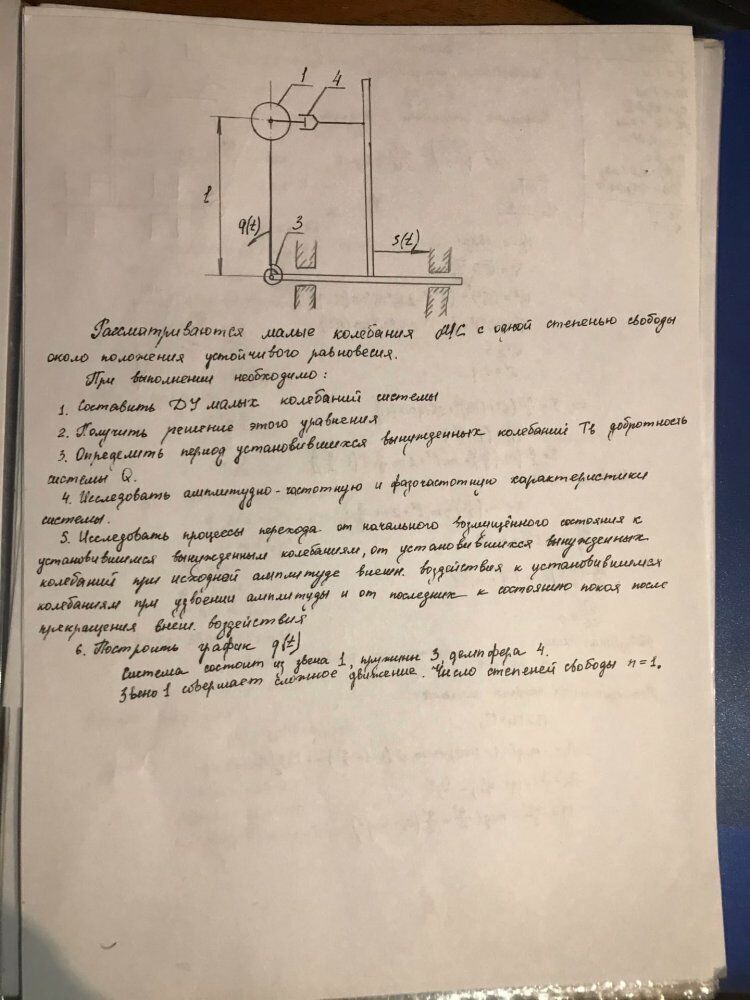 1
4
l
q(t)
3
s(t)
Рассматриваются малые колебания МС с одной степенью свободы
около положения устойчивого равновесия.
При выполнении необходимо:
1. Составить ДУ малых колебаний системы
2. Получить решение этого уравнения
3. Определить период установившихся вынужденных колебаний Тв добротность
системы Q.
4. Исследовать амплитудно-частотную и фазочастотную характеристики
системы.
5. Исследовать процессы перехода от начального возмущённого состояния к
установившимся вынужденным колебаниям, от установившихся вынужденных
колебаний при исходной амплитуде внешн. воздействия к установившимся
колебаниям при удвоении амплитуды и от последних к состоянию покоя после
прекращения внеш. воздействия
6. Построить график q(t)
Система состоит из звена 1, пружины 3 демпфера 4.
Звено 1 совершает сложное движение. Число степеней свободы n=1.